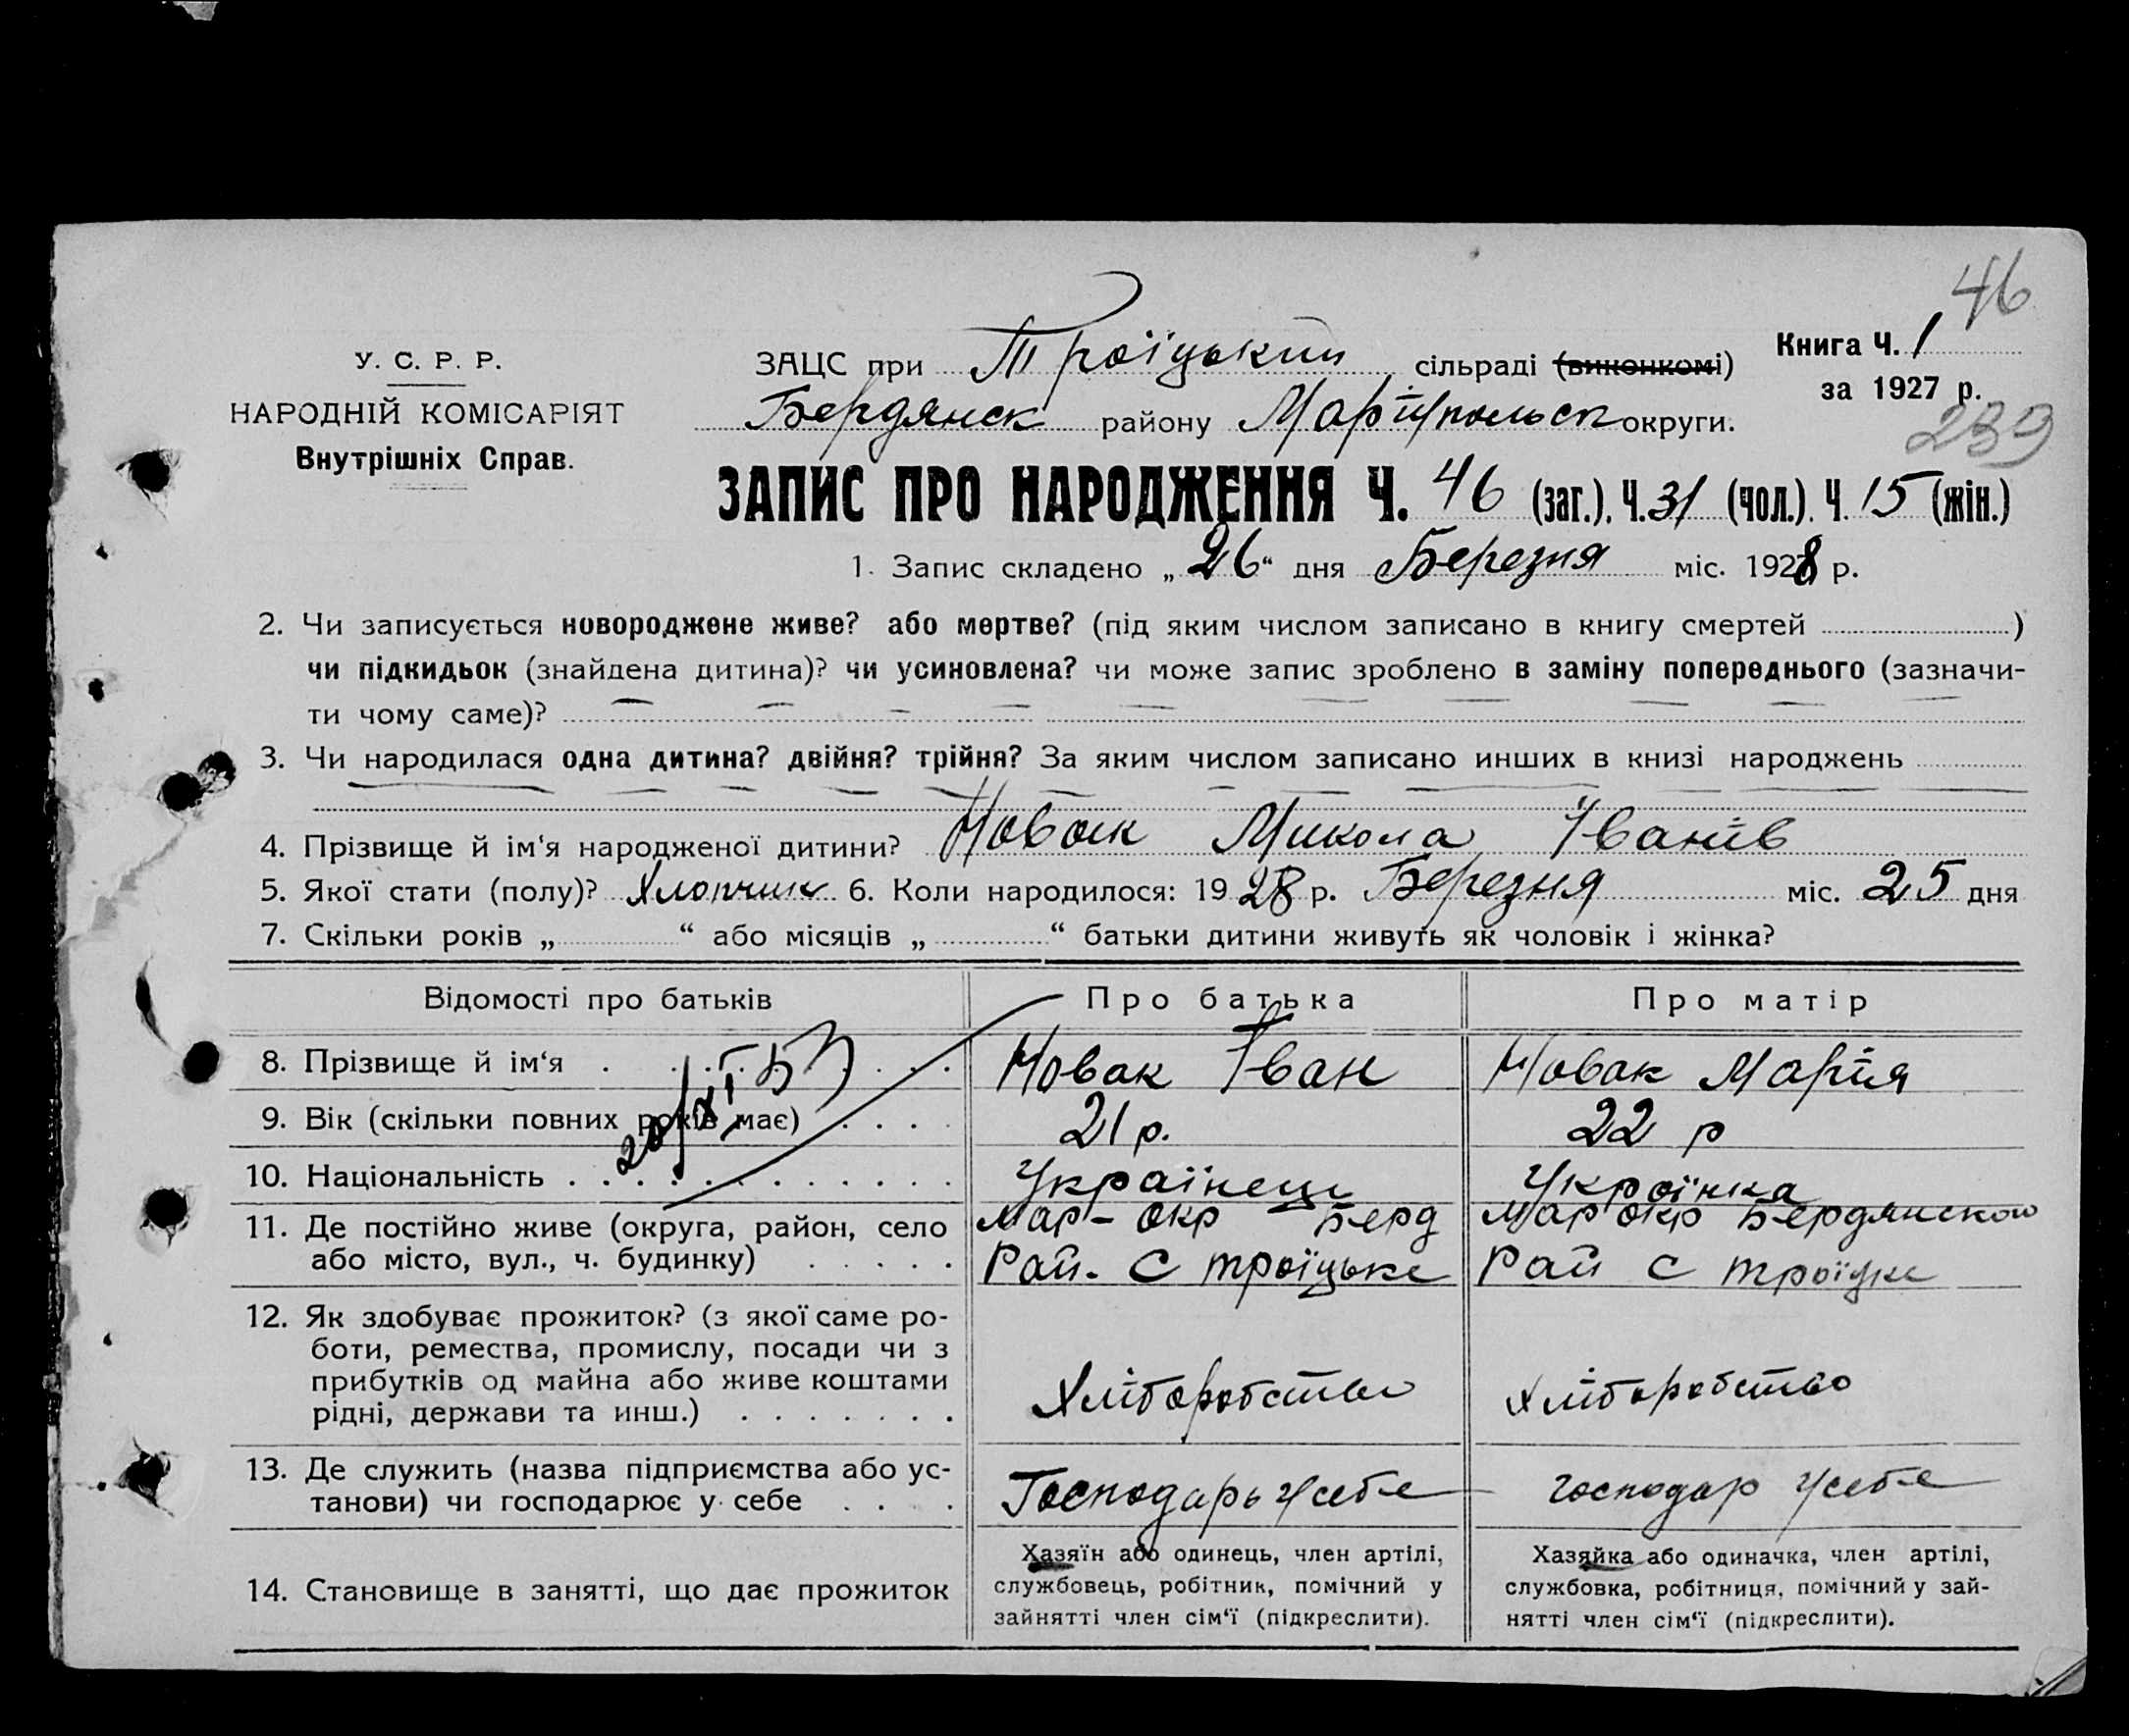 46
У. С. Р. Р.
НАРОДНІЙ КОМІСАРІЯТ
Внутрішніх Справ.
ЗАЦС при Троїцький сільраді (виконкомі)
Бердянск району Маріупольск округи.
Книга Ч. 1
за 1927 р.
239
ЗАПИС ПРО НАРОДЖЕННЯ Ч. 46 (заг.). Ч. 31 (чол.). Ч. 15 (жін.)
1. Запис складено „26“ дня Березня міс. 1928 р.
2. Чи записується новороджене живе? або мертве? (під яким числом записано в книгу смертей )
чи підкидьок (знайдена дитина)? чи усиновлена? чи може запис зроблено в заміну попереднього (зазначи-
ти чому саме)?
3. Чи народилася одна дитина? двійня? трійня? За яким числом записано инших в книзі народжень
4. Прізвище й ім‘я народженої дитини? Новак Микола Іванів
5. Якої стати (полу)? Хлопчик 6. Коли народилося: 1928 р. Березня міс. 25 дня
7. Скільки років „ “ або місяців „ “ батьки дитини живуть як чоловік і жінка?
Відомості про батьків Про батька Про матір
8. Прізвище й ім‘я Новак Іван Новак Марія
9. Вік (скільки повних років має) 21 р. 22 р
10. Національність Українець Українка
11. Де постійно живе (округа, район, село Мар-окр Берд Мар окр Бердянского
або місто, вул., ч. будинку) Рай. С троїцьке Рай С троїцке
12. Як здобуває прожиток? (з якої саме ро-
боти, ремества, промислу, посади чи з
прибутків од майна або живе коштами
рідні, держави та инш.) Хліборобство Хліборобство
13. Де служить (назва підприємства або ус-
танови) чи господарює у себе Господарь усебе господар усебе
14. Становище в занятті, що дає прожиток
Хазяїн або одинець, член артілі,
службовець, робітник, помічний у
зайнятті член сім‘ї (підкреслити).
Хазяйка або одиначка, член артілі,
службовка, робітниця, помічний у зай-
нятті член сім‘ї (підкреслити).